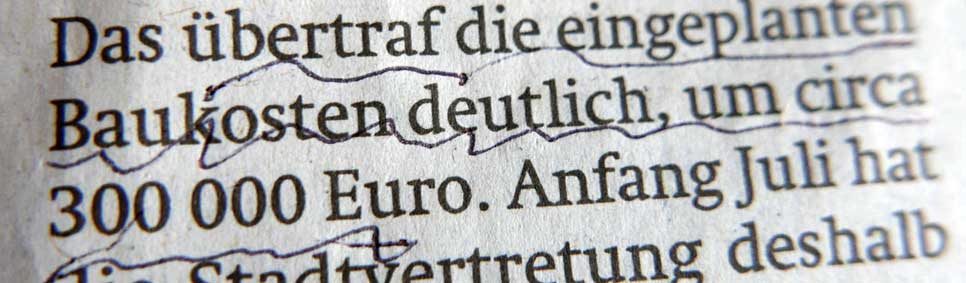 Das übertraf die eingeplanten
Baukosten deutlich, um circa
300 000 Euro. Anfang Juli hat
die Stadtvertretung deshalb